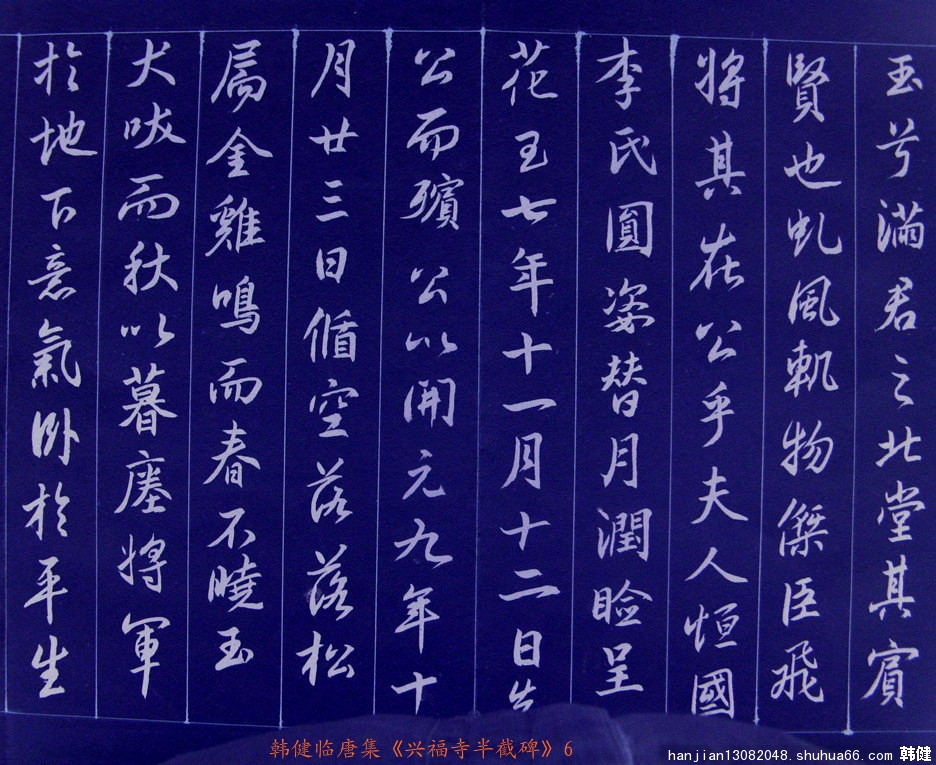 玉兮滿君之北堂其賓
賢也虬風軌物傑臣飛
將其在公乎夫人恒國
李氏圓姿替月潤臉呈
花王七年十一月十二日先
公而殯公以開元九年十
月廿三日循空落落松
扃金雞鳴而春不曉玉
犬吠而秋以暮塵將軍
於地下意氣卧於平生
韩健临唐集《兴福寺半截碑》6
hanjian13082048.shuhua66.com 韩健